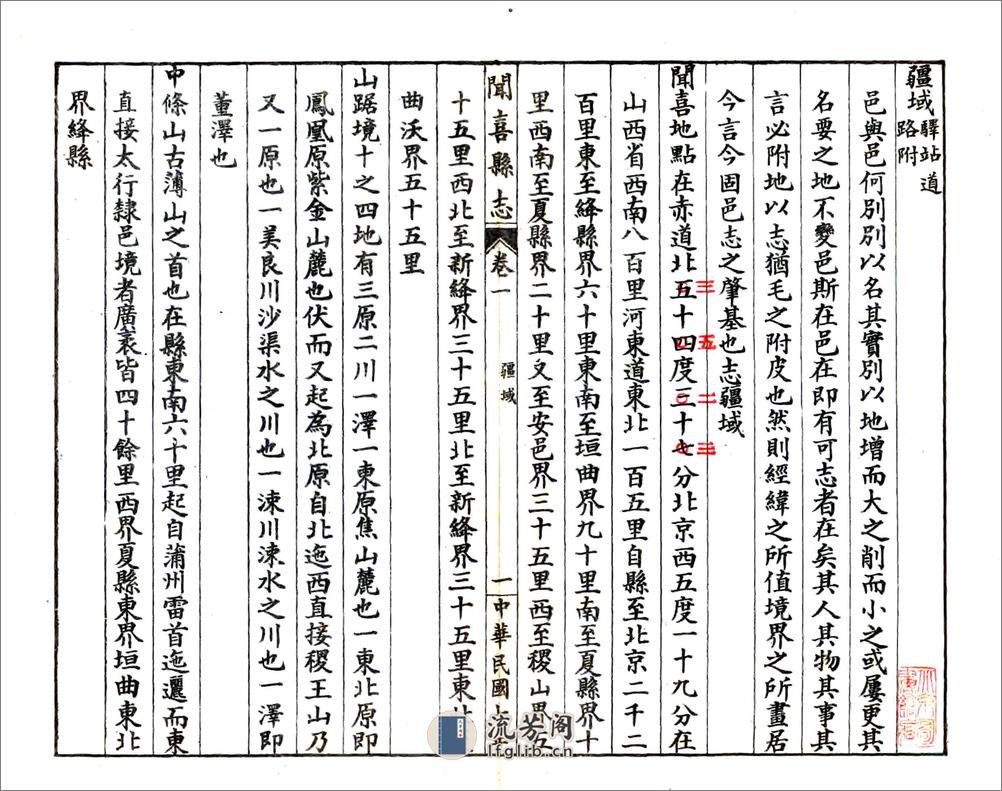 疆域驛站道
路附
邑與邑何別別以名其實別以地增而大之削而小之或屢更其
名要之地不變邑斯在邑在即有可志者在矣其人其物其事其
言必附地以志猶毛之附皮也然則經緯之所值境界之所畫居
今言今固邑志之肇基也志疆域
三 五 二 三
聞喜地點在赤道北五十四度三十七分北京西五度一十九分在
山西省西南八百里河東道東北一百五里自縣至北京二千二
百里東至絳縣界六十里東南至垣曲界九十里南至夏縣界十
里西南至夏縣界二十里又至安邑界三十五里西至稷山界五
聞喜縣志 卷一 疆域 一 中華民國
十五里西北至新絳界三十五里北至新絳界三十五里東北
曲沃界五十五里
山踞境十之四地有三原二川一澤一東原焦山麓也一東北原即
鳳凰原紫金山麓也伏而又起為北原自北迤西直接稷王山乃
又一原也一美良川沙渠水之川也一涑川涑水之川也一澤即
董澤也
中條山古薄山之首也在縣東南六十里起自蒲州雷首迤邐而東
直接太行隸邑境者廣袤皆四十餘里西界夏縣東界垣曲東北
界絳縣
流芳阁
lfglib.cn